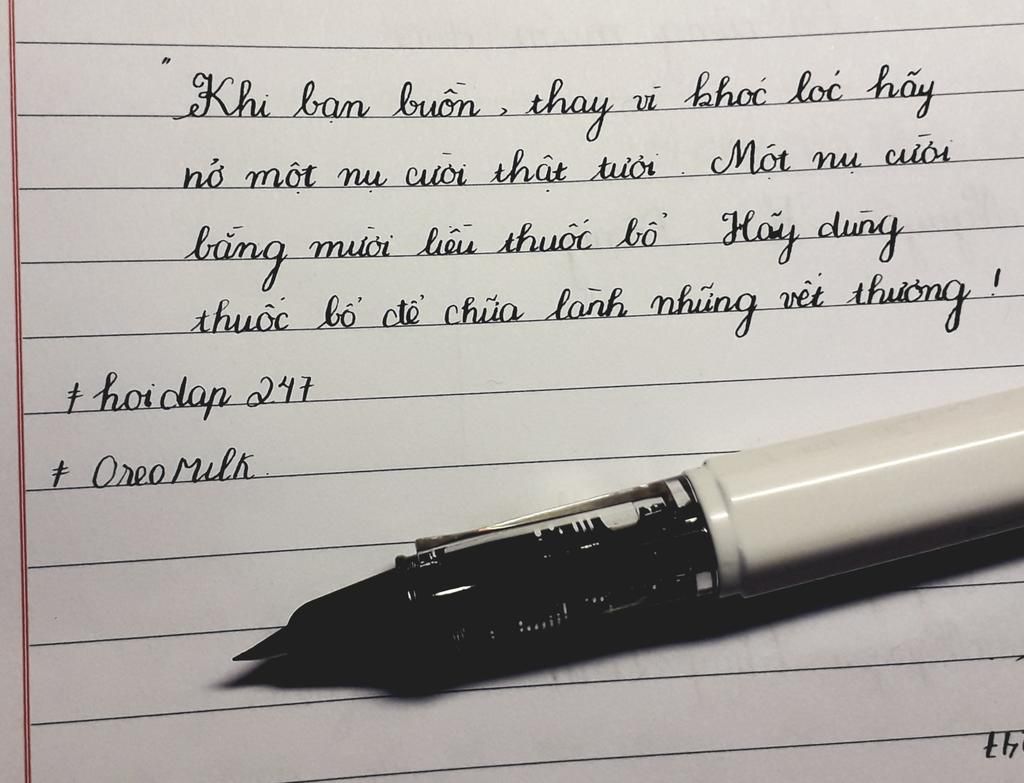 "Khi bạn buồn, thay vì khóc lóc hãy
nở một nụ cười thật tươi. Một nụ cười
bằng mười liều thuốc bổ Hãy dùng
thuốc bổ để chữa lành những vết thương!
# hoidap 247
# OreoMilk